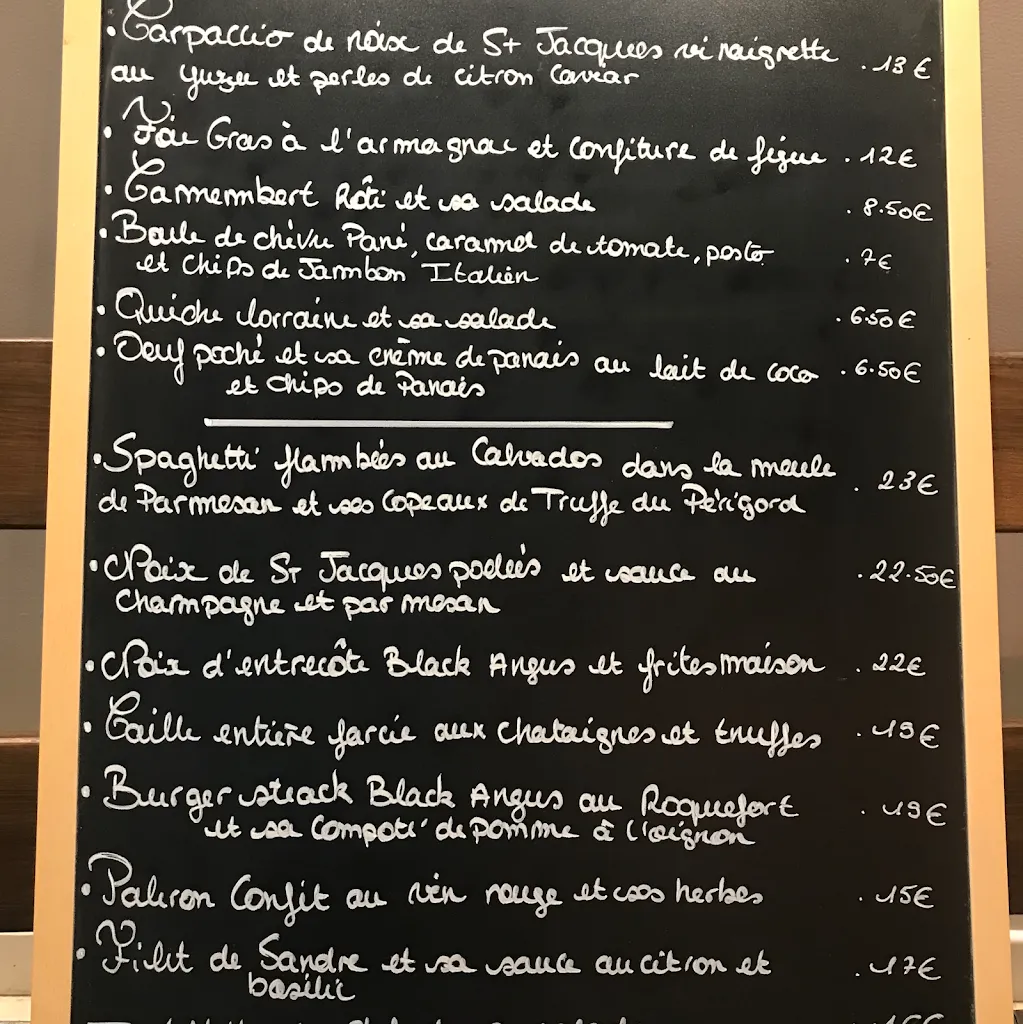 · Carpaccio de noix de St Jacques vinaigrette . 13 €
au yuzu et perles de citron Caviar
· Foie Gras à l'armagnac et confiture de figue . 12€
· Camembert Rôti et sa salade . 8.50€
· Boule de chèvre Pané, caramel de tomate, pesto . 7€
et chips de Jambon Italien
· Quiche lorraine et sa salade . 6.50€
· Oeuf poché et sa crème de panais au lait de coco . 6.50€
et chips de Panais
· Spaghetti flambées au Calvados dans la meule . 23€
de Parmesan et ses copeaux de Truffe du Périgord
· Noix de St Jacques poelées et sauce au . 22.50€
Champagne et parmesan
· Noix d'entrecôte Black Angus et frites maison . 22€
· Caille entière farcie aux chataignes et truffes . 19€
· Burger steack Black Angus au Roquefort . 19€
et sa compoté de pomme à l'oignon
· Paleron Confit au vin rouge et ses herbes . 15€
· Filet de Sandre et sa sauce au citron et . 17€
basilic